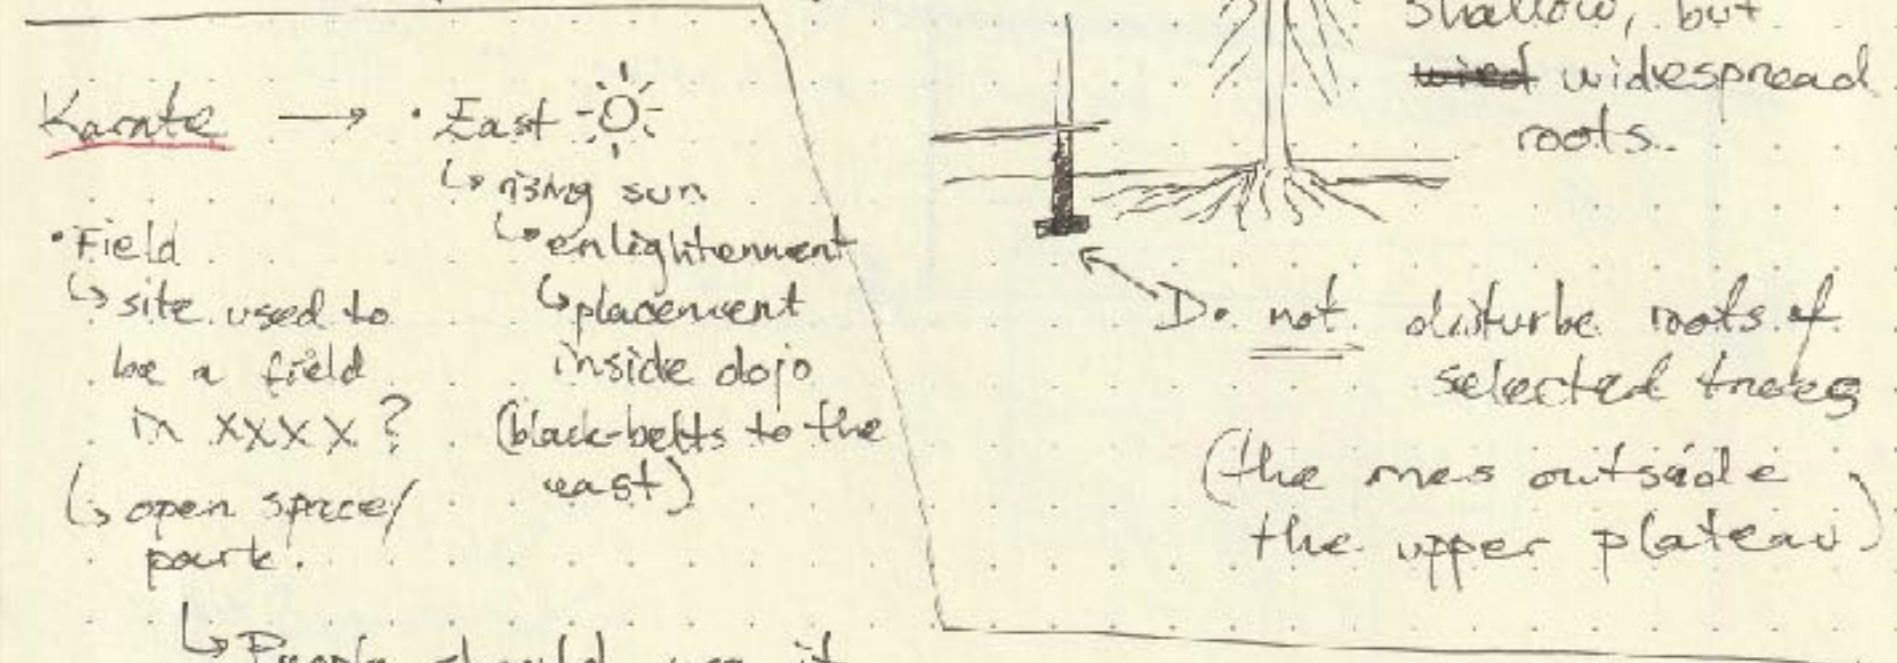 Karate → • East
↳ rising sun
↳ enlightenment
↳ placement
inside dojo
(black-belts to the
east)
• Field
↳ site used to
be a field
in XXXX?
↳ open space/
park.
↳ People should use it
shallow, but
wied widespread
roots.
Do not disturbe roots of
selected trees
(the ones outside
the upper plateau)